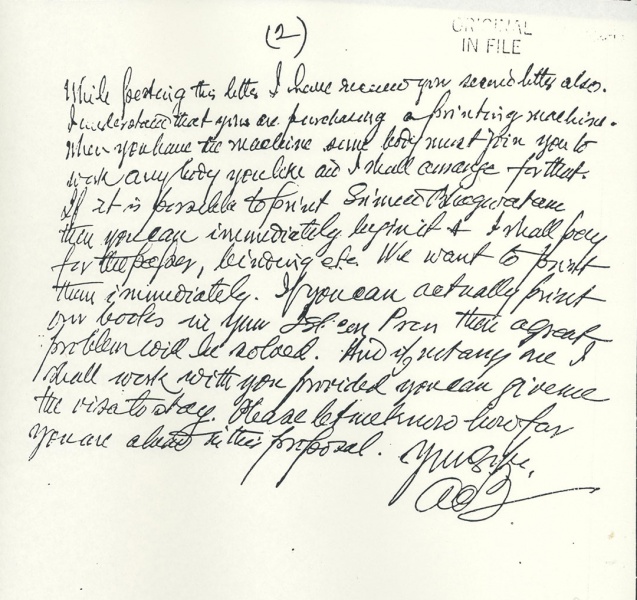 (2)
ORIGINAL
IN FILE
While posting this letter I have received your second letter also.
I understand that you are purchasing a printing machine.
When you have the machine some body must join you to
work any body you like and I shall arrange for that.
If it is possible to print Srimad Bhagwatam
then you can immediately begin it & I shall pay
for the paper, binding etc. We want to print
them immediately. If you can actually print
our books in your Press then a great
problem will be solved. And if not any one I
shall work with you provided you can give me
the visa to stay. Please let me know how far
you are ahead in this proposal.